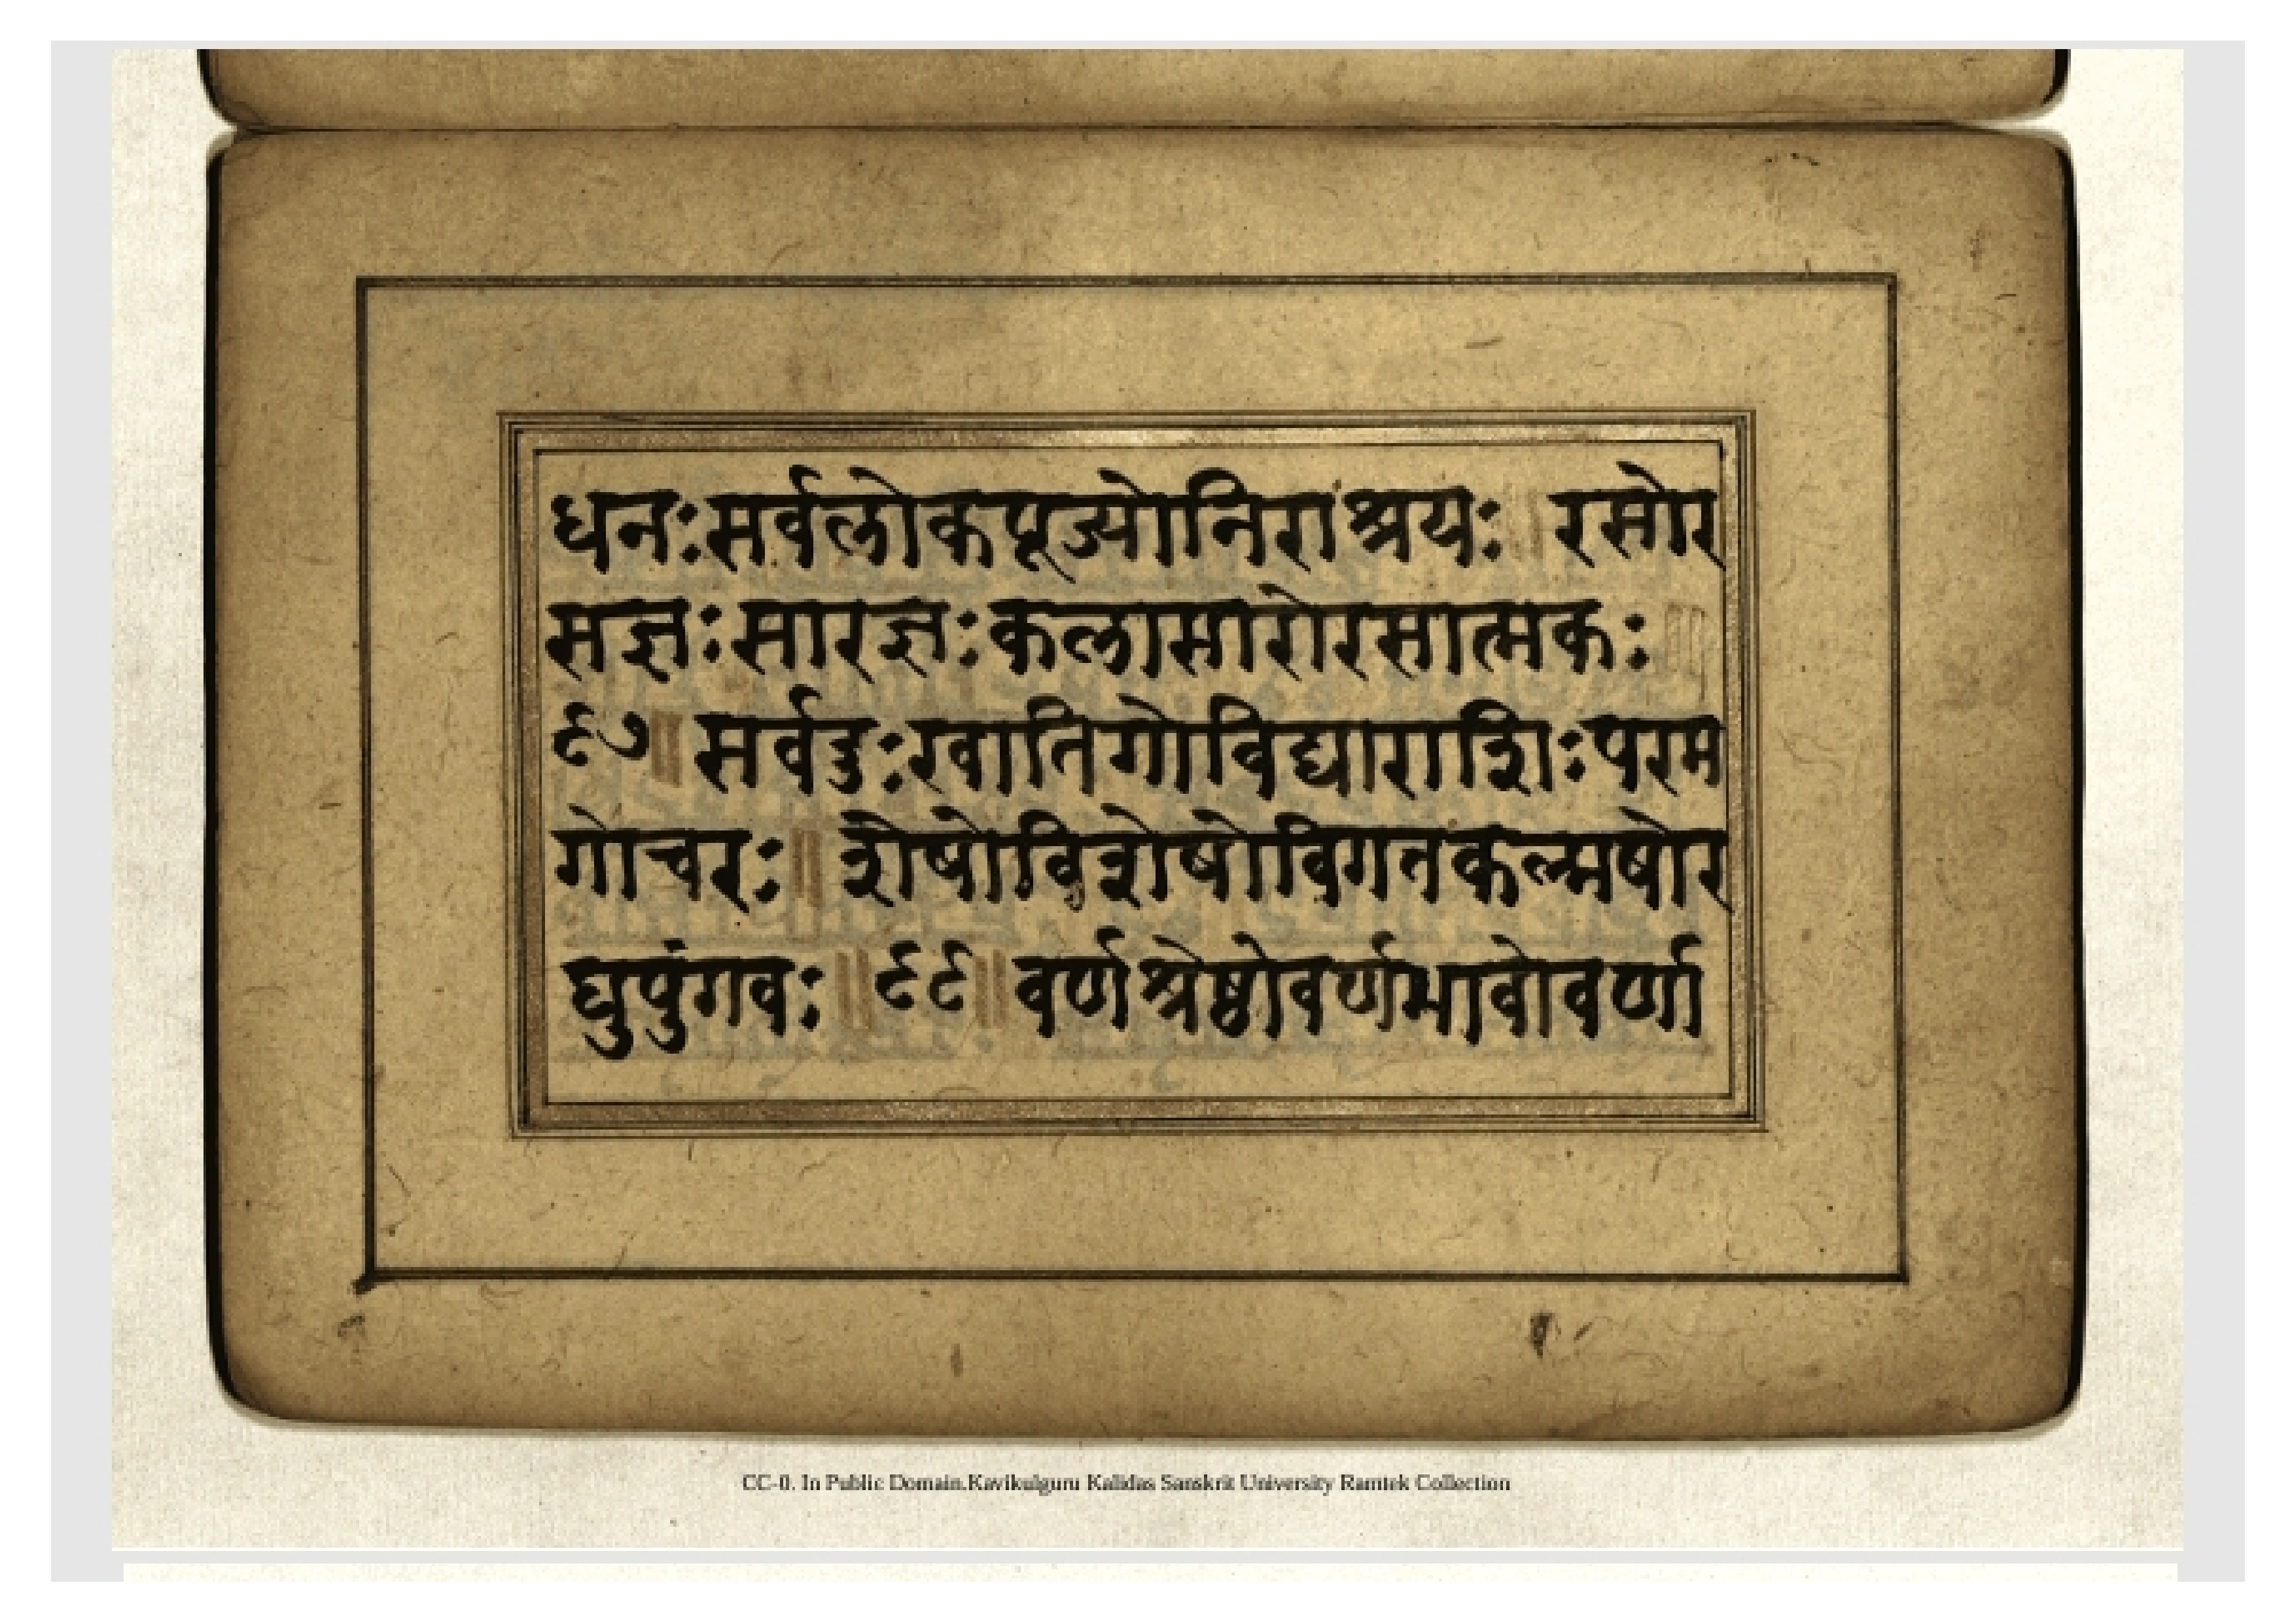 धनःसर्वलोकपूज्योनिराश्रयः ॥ रसोर
सज्ञःसारज्ञःकलासारोरसात्मकः ॥
९७ ॥ सर्वदुःखातिगोविद्याराशिःपरम
गोचरः ॥ शेषोविशेषोविगतकल्मषोर
घुपुंगवः ॥ ९९ ॥ वर्णश्रेष्ठोवर्णभावोवर्णा
CC-0. In Public Domain.Kavikulguru Kalidas Sanskrit University Ramtek Collection